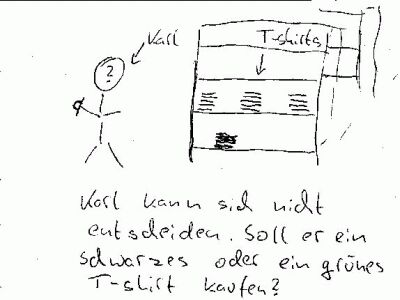 Karl
T-shirts
?
Karl kann sich nicht
entscheiden. Soll er ein
schwarzes oder ein grünes
T-shirt kaufen?